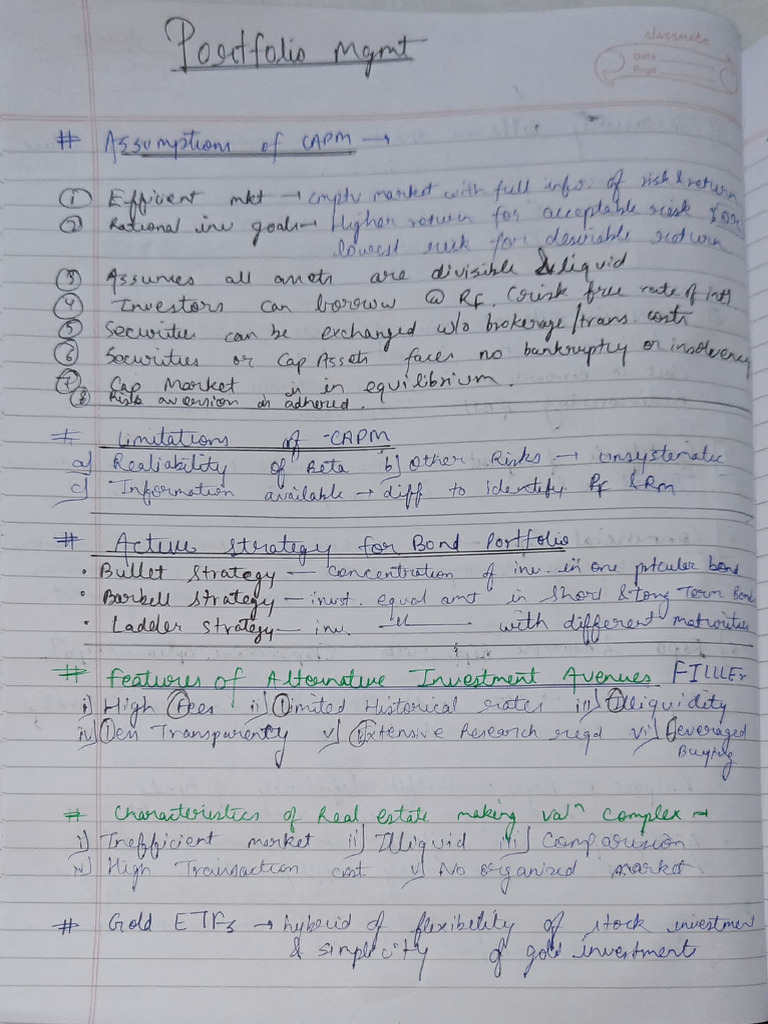 classmate
Date
Page
Portfolio Mgmt
# Assumptions of CAPM →
① Efficent mkt → Cmptv market with full info. of risk & return
② Rational inv goals → Higher return for acceptable risk (or)
lowest risk for desirable return
③ Assumes all assets are divisible & liquid
④ Investors can borrow @ Rf. (risk free rate of int)
⑤ Securities can be exchanged w/o brokerage/trans. costs
⑥ Securities or Cap Assets faces no bankruptcy or insolvency
⑦ Cap Market is in equilibrium.
⑧ Risk aversion is adhered.
# Limitations of CAPM
a) Realiability of Beta b) Other Risks → unsystematic
c) Information available → diff to identify Rf & Rm
# Active Strategy for Bond Portfolio
• Bullet Strategy — concentration of inv. in one prtcular bond
• Barbell Strategy — invst. equal amt in Short & Long Term Bonds
• Ladder Strategy — inv. —"— with different maturities
# Features of Alternative Investment Avenues FILLEL
i) High Fees ii) Limited Historical rates iii) Illiquidity
iv) Less Transparenty v) Extensive Research reqd vi) Leveraged
Buying
# Characteristics of Real estate making valⁿ complex →
i) Inefficient market ii) Illiquid iii) Comparision
iv) High Transaction cost v) No organized market
# Gold ETFs → hybrid of flexibility of stock investment
& simplicity of gold investments